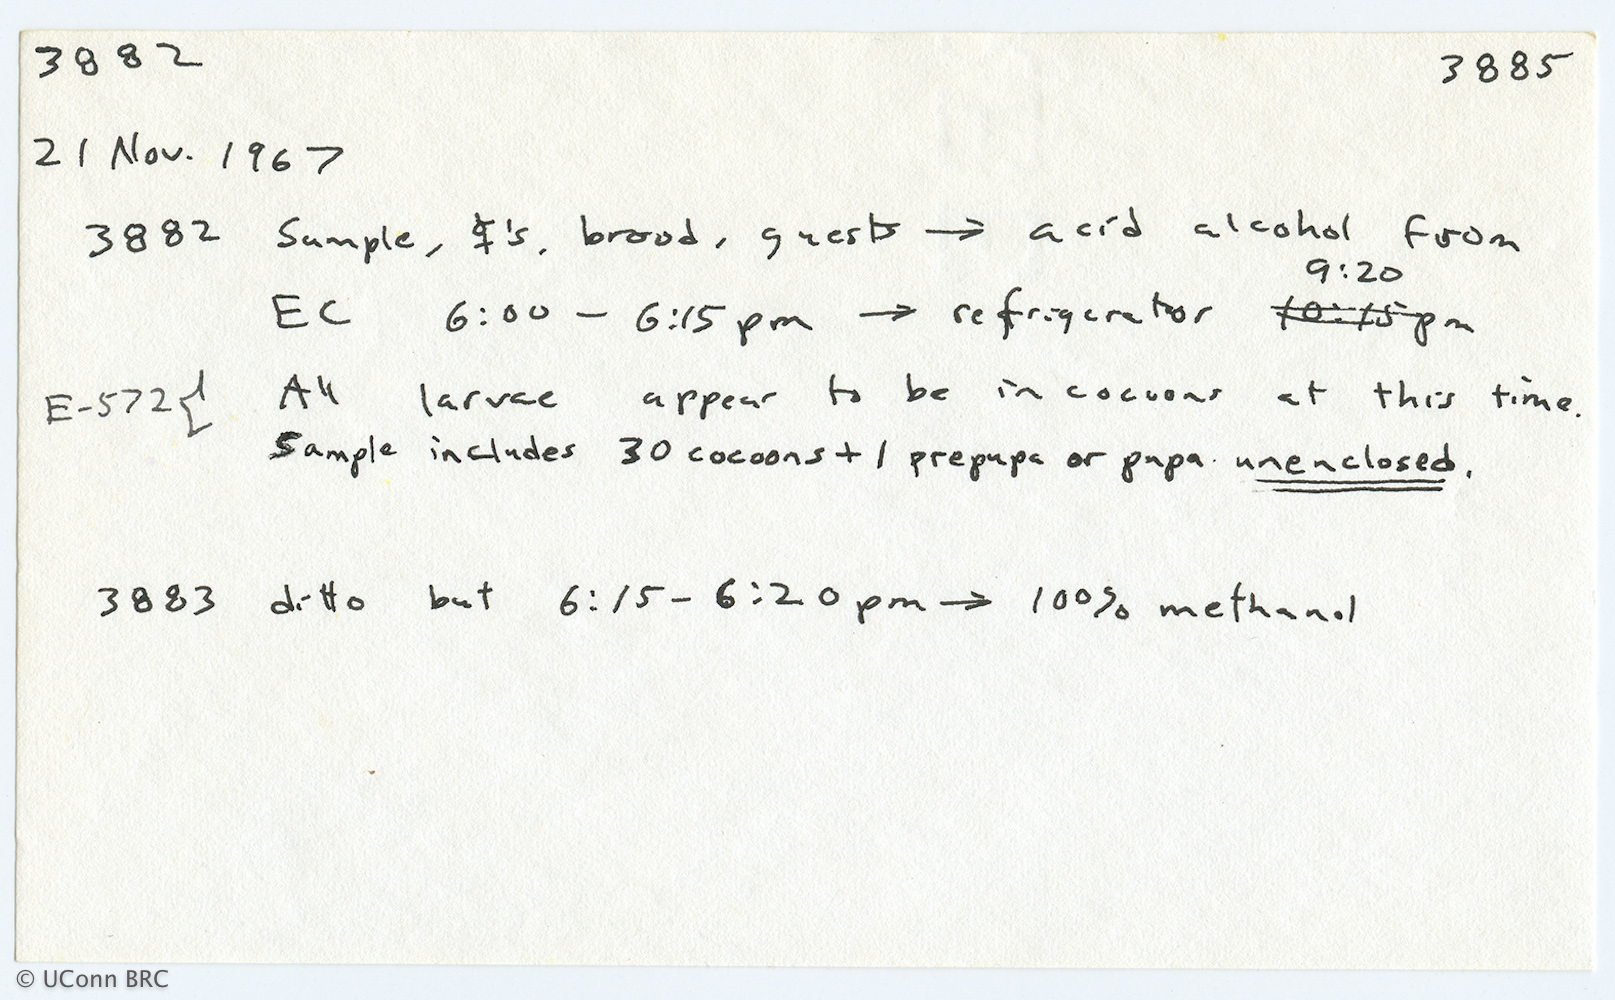 3882 3885
21 Nov. 1967
3882 Sample, ☿'s, brood, guests → acid alcohol from
9:20
EC 6:00 – 6:15 pm → refrigerator ~~10:15~~ pm
E-572{ All larvae appear to be in cocoons at this time.
Sample includes 30 cocoons + 1 prepupa or pupa unenclosed.
3883 ditto but 6:15 – 6:20 pm → 100% methanol
© UConn BRC